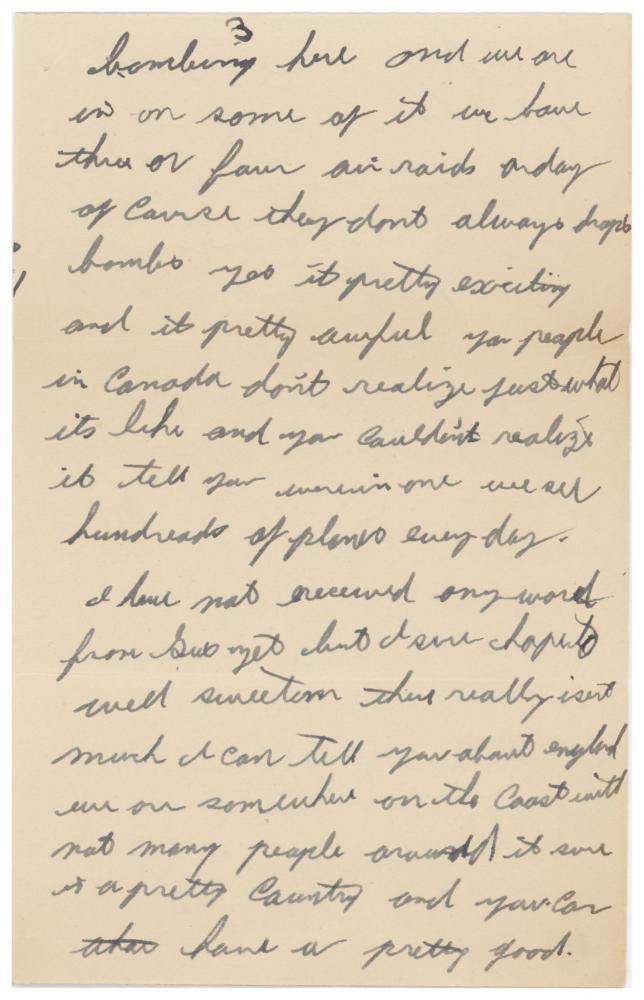 3
bombing here and we are
in on some of it we have
three or four air raids a day
of Course they dont always drops
bombs yes it pretty exciting
and it pretty awful you people
in Canada don't realize just what
its like and you Couldn't realize
it tell you were in one we see
hundreads of planes every day.
I have not received any word
from Gus yet but I sure hope to
well sweetom there really isent
much I can tell you about england
we are somewhere on the Coast with
not many people around it sure
is a pretty Country and you can
have a pretty good.